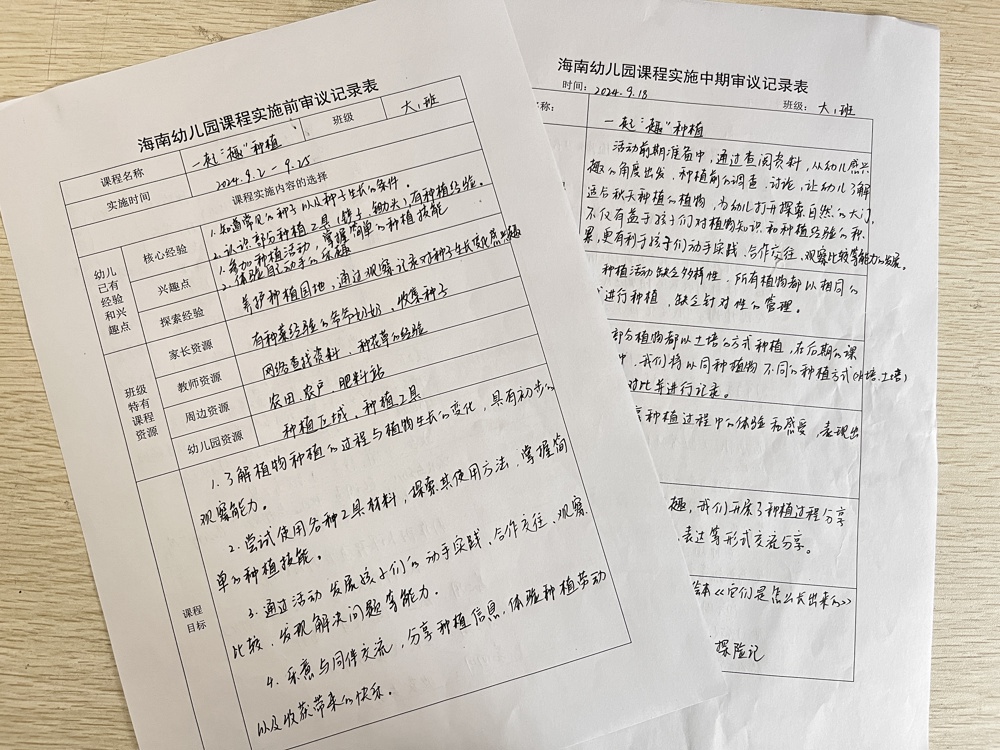 海南幼儿园课程实施前审议记录表
课程名称 一起“趣”种植 班级 大1班
实施时间 2024.9.2-9.25
课程实施内容的选择
幼儿已有经验和兴趣点
核心经验
1.知道常见的种子以及种子生长的条件。
2.认识部分种植工具(铲子、锄头),有种植经验。
兴趣点
1.参加种植活动,掌握简单的种植技能
2.体验自己动手的乐趣
探索经验 养护种植园地,通过观察记录对种子生长变化感兴趣
班级特有课程资源
家长资源 有种菜经验的爷爷奶奶、收集种子
教师资源 网络查找资料、种花草的经验
周边资源 农田、农户、肥料站
幼儿园资源 种植区域、种植工具
课程目标
1.了解植物种植的过程与植物生长的变化,具有初步的
观察能力。
2.尝试使用各种工具材料,探索其使用方法,掌握简
单的种植技能。
3.通过活动发展孩子们的动手实践、合作交往、观察
比较、发现解决问题等能力。
4.乐意与同伴交流,分享种植信息,体验种植劳动
以及收获带来的快乐。
海南幼儿园课程实施中期审议记录表
时间:2024.9.18 班级:大1班
称: 一起“趣”种植
活动前期准备中,通过查阅资料,从幼儿感兴
趣的角度出发,种植前的调查、讨论,让幼儿了解
适合秋天种植的植物,为幼儿打开探索自然的大门,
不仅有益于孩子们对植物知识和种植经验的积
累,更有利于孩子们动手实践、合作交往、观察比较等能力的发展。
种植活动缺乏多样性,所有植物都以相同的
进行种植,缺乏针对性的管理。
部分植物都以土培的方式种植,在后期的课
中,我们将以同种植物不同的种植方式(水培、土培)
对比并进行记录。
享种植过程中的体验和感受,表现出
趣,我们开展了种植过程分享
、表达等形式交流分享。
绘本《它们是怎么长出来的》
探险记